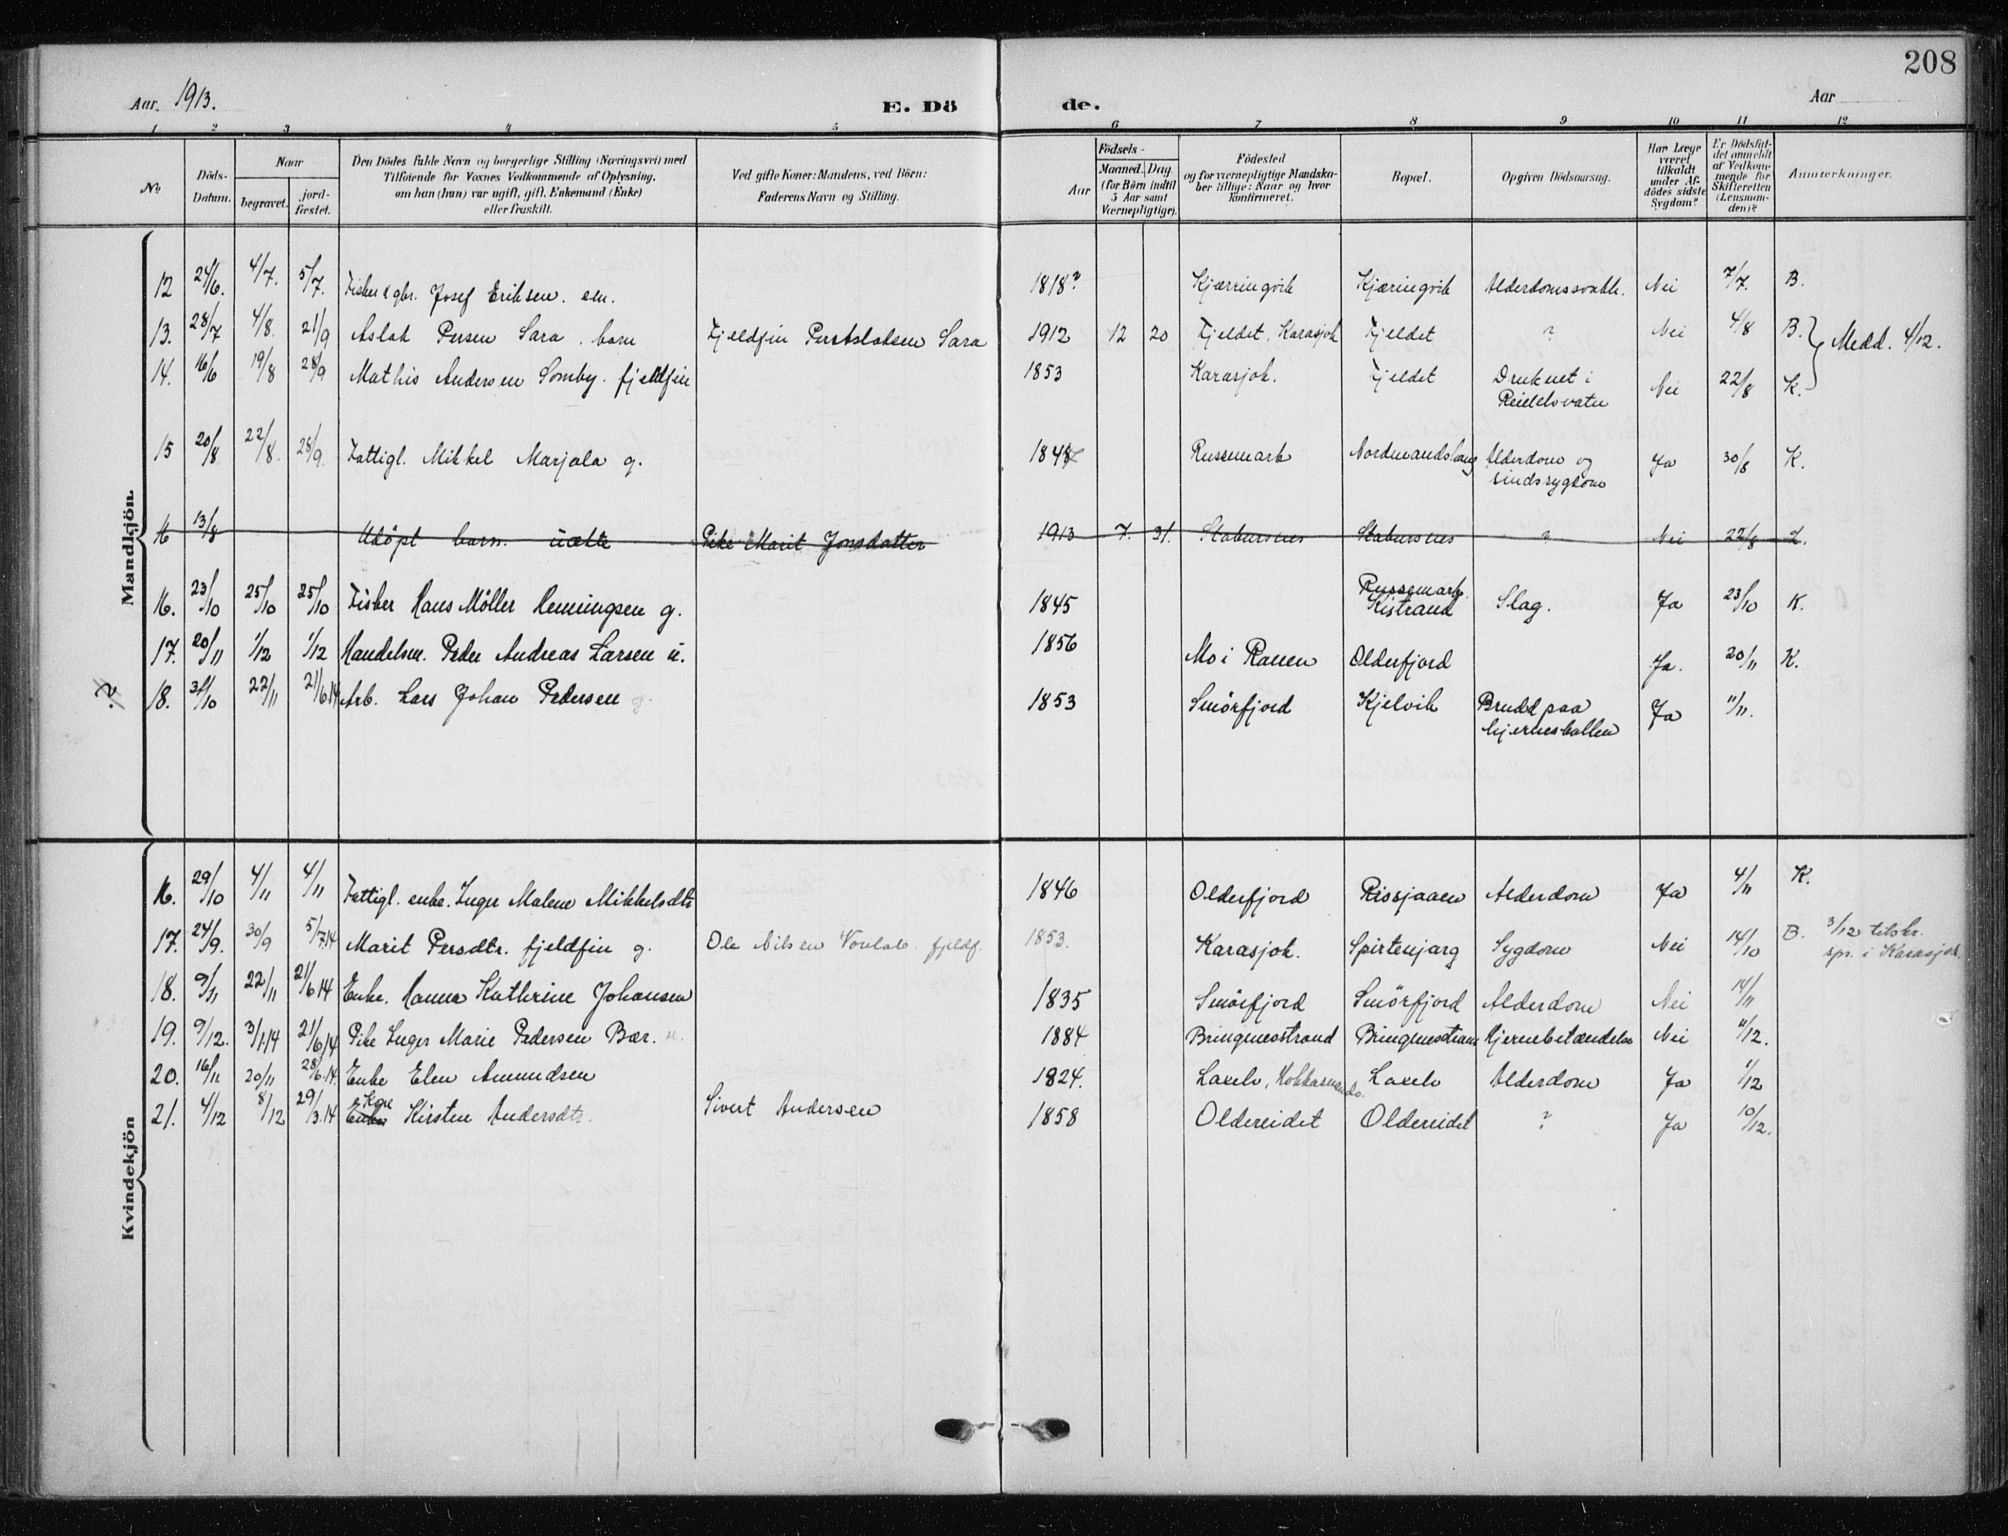 208
Aar 1913. E. Dö de. Aar
1 2 3 4 5 6 7 8 9 10 11 12
No. Döds-Datum. Naar begravet. jord-fæstet. Den Dödes fulde Navn og borgerlige Stilling (Næringsvei) med Tilföiende for Voxnes Vedkommende af Oplysning, om han (hun) var ugift, gift, Enkemand (Enke) eller fraskilt. Ved gifte Koner: Mandens, ved Börn: Faderens Navn og Stilling. Födsels- Aar Maaned. Dag. (for Börn indtil 5 Aar samt Værnepligtige). Födested og for værnepligtige Mandskaber tillige: Naar og hvor konfirmeret. Bopæl. Opgiven Dödsaarsag. Har Læge været tilkaldt under Afdödes sidste Sygdom? Er Dödsfaldet anmeldt af Vedkommende for Skifteretten (Lensmanden)? Anmærkninger.
Mandkjön
12 24/6. 4/7. 5/7. Fisker & gbr. Josef Eriksen. em. 1818? Kjærringvik Kjæringvik Alderdomssvakh. Nei 7/7. B.
13. 28/7 4/8. 21/9 Aslak Persen Sara. barn Fjeldfin Per Aslaksen Sara 1912 12 20 Fjeldet, Karasjok Fjeldet ? Nei 4/8 B. Medd. 4/12.
14. 16/6 19/8 28/9 Mathis Andersen Somby. fjeldfin 1853 Karasjok. Fjeldet Druknet i Nei 22/8 K.
15 20/8 22/8. 28/9. Fattigl. Mikkel Marjala g. 184 Russemark Nordmandslang Alderdom og sindssygdom Ja 30/8 K.
16 13/8 Udöpt barn. uægte Pike Marit Jonsdatter 1913 7. 31. Stabursnes Stabursnes ? Nei 25/8 L.
16. 23/10 25/10 25/10 Fisker Hans Möller Henningsen g. 1845 Russemark. Kistrand Slag. Ja 23/10 K.
17. 20/11 1/12 1/12 Handelsm. Peder Andreas Larsen u. 1856 Mo i Ranen Olderfjord Ja. 20/11 K.
18. 31/10 22/11 21/6 14 Arb. Lars Johan Pedersen g. 1853 Smörfjord Kjelvik Brudd paa hjerneskallen Ja 11/11.
Kvindekjön
16. 29/10 4/11 4/11 Fattigl. enke. Inger Malene Mikkelsdtr 1846 Olderfjord Rissjaaen Alderdom Ja 4/11 K.
17. 24/9. 30/9 5/7.14 Marit Persdtr. fjeldfin g. Ole Nilsen fjeldf. 1853. Karasjok. Spirtenjarg Sygdom Nei 14/10 B. 3/12 tilskr. spr. i Karasjok.
18. 9/11 22/11 21/6 14 Enke. Hanna Kathrine Johansen 1835 Smörfjord Smörfjord Alderdom Nei 14/11
19. 9/12. 3/1.14 21/6 14 Pike Inger Marie Pedersen Bær. u. 1884 Bringnesstrand Bringnesstrand Hjernebetændelse Nei 11/12.
20. 16/11 20/11 28/6.14. Enke Elen Amundsen 1824. Laxelv, Laxelv Alderdom Ja 1/12
21. 4/12 8/12 29/3.14 Enke Kone Kirsten Andersdtr. Sivert Andersen 1858 Oldereidet Oldereidet ? Ja 10/12.